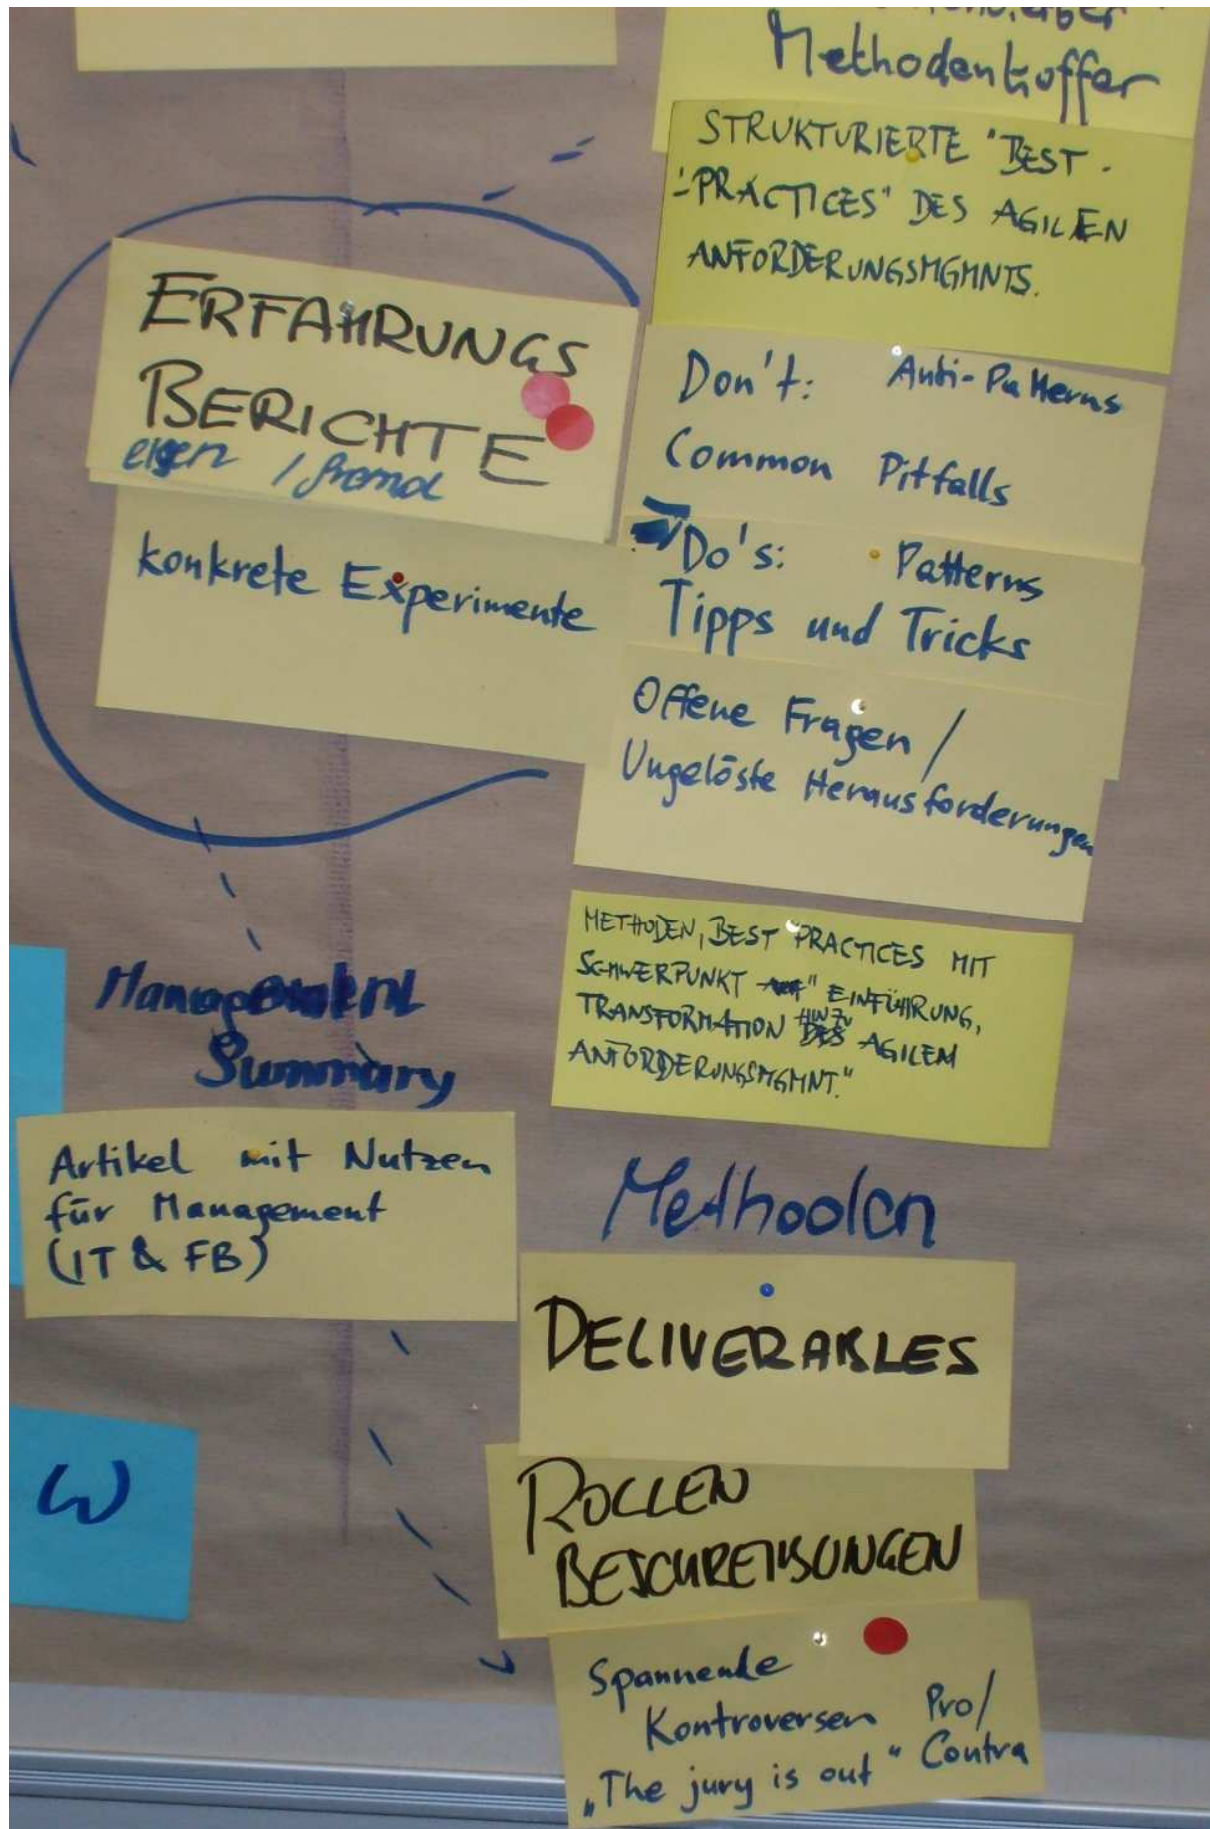 Methodenkoffer
STRUKTURIERTE "BEST-
-PRACTICES" DES AGILEN
ANFORDERUNGSMGMNTS.
ERFAHRUNGS
BERICHTE
eigen / fremd
konkrete Experimente
Don't: Anti-Patterns
Common Pitfalls
Do's: Patterns
Tipps und Tricks
Offene Fragen /
Ungelöste Herausforderungen
METHODEN, BEST PRACTICES MIT
SCHWERPUNKT "EINFÜHRUNG,
TRANSFORMATION HIN ZU AGILEM
ANFORDERUNGSMGMNT."
Management
Summary
Artikel mit Nutzen
für Management
(IT & FB)
Methoden
DELIVERABLES
ROLLEN
BESCHREIBUNGEN
W
Spannende
Kontroversen Pro/
„The jury is out" Contra